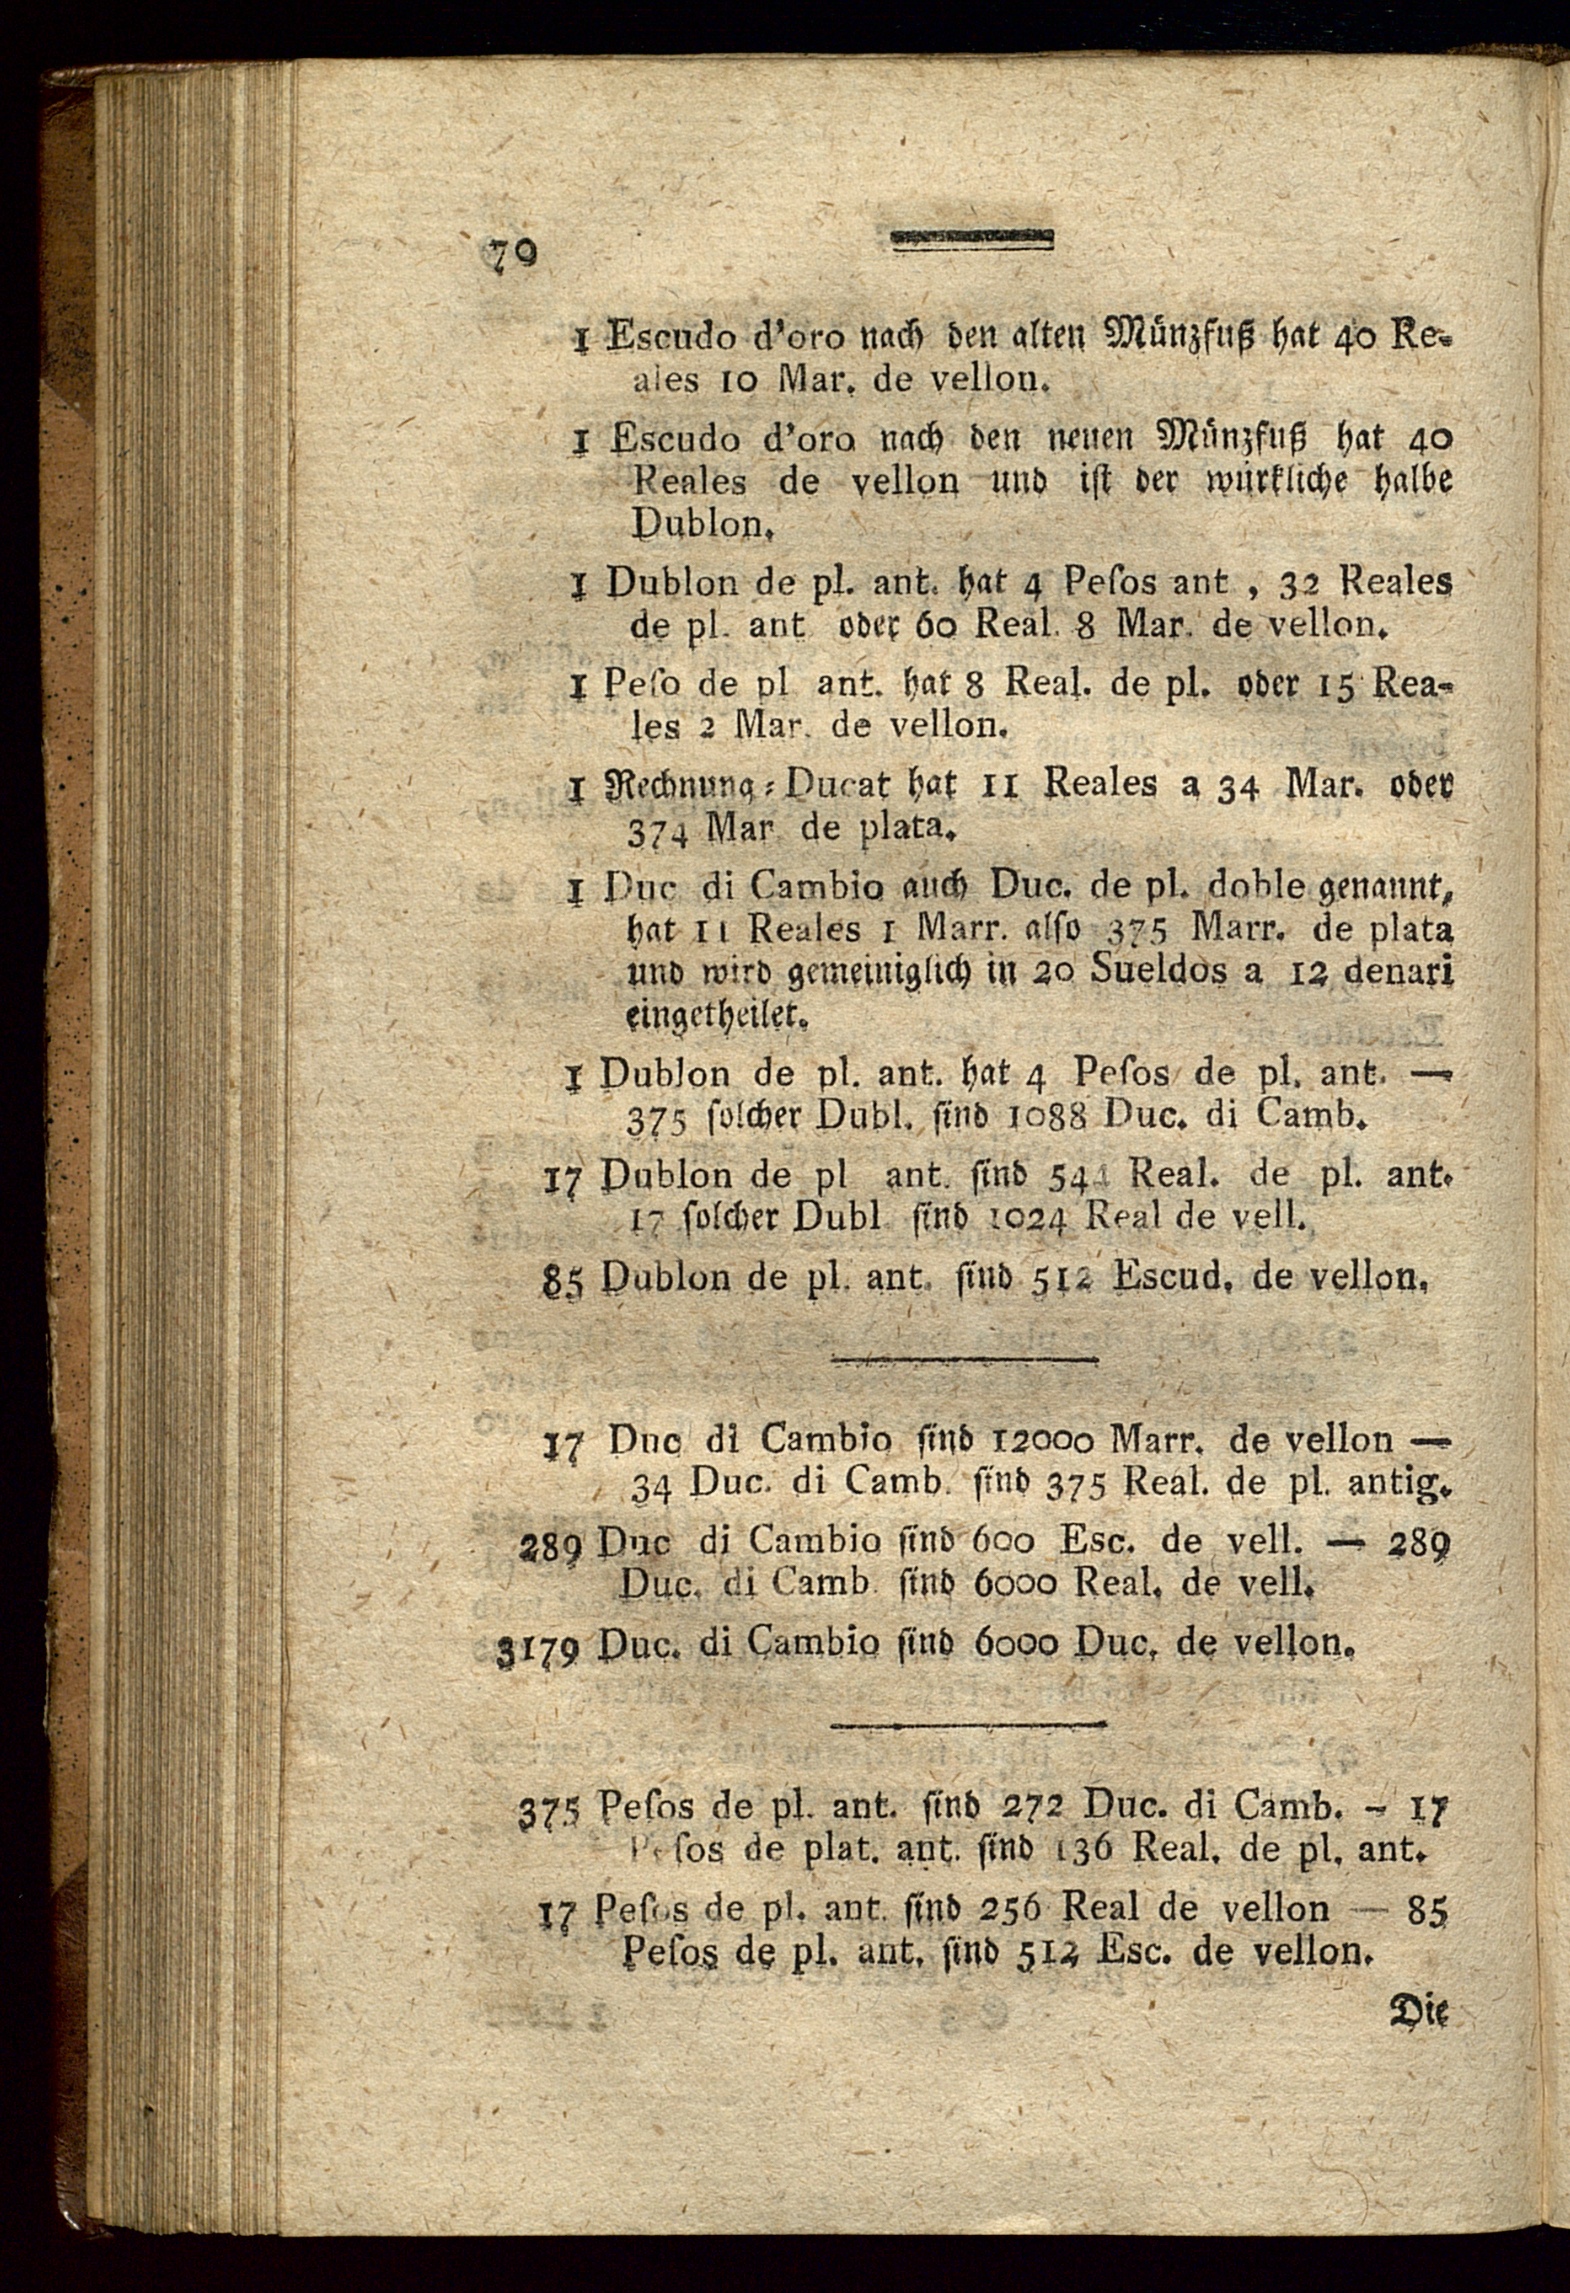 70
1 Escudo d'oro nach den alten Münzfuß hat 40 Re-
ales 10 Mar. de vellon.
1 Escudo d'oro nach den neuen Münzfuß hat 40
Reales de vellon und ist der würkliche halbe
Dublon.
1 Dublon de pl. ant. hat 4 Peſos ant , 32 Reales
de pl. ant oder 60 Real. 8 Mar. de vellon.
1 Peſo de pl ant. hat 8 Real. de pl. oder 15 Rea-
les 2 Mar. de vellon.
1 Rechnung-Ducat hat 11 Reales a 34 Mar. oder
374 Mar de plata.
1 Duc di Cambio auch Duc. de pl. doble genannt,
hat 11 Reales 1 Marr. alſo 375 Marr. de plata
und wird gemeiniglich in 20 Sueldos a 12 denari
eingetheilet.
1 Dublon de pl. ant. hat 4 Peſos de pl. ant. —
375 ſolcher Dubl. ſind 1088 Duc. di Camb.
17 Dublon de pl ant. ſind 544 Real. de pl. ant.
17 ſolcher Dubl ſind 1024 Real de vell.
85 Dublon de pl. ant. ſind 512 Escud. de vellon.
17 Duc di Cambio ſind 12000 Marr. de vellon —
34 Duc. di Camb. ſind 375 Real. de pl. antig.
289 Duc di Cambio ſind 600 Esc. de vell. — 289
Duc. di Camb. ſind 6000 Real. de vell.
3179 Duc. di Cambio ſind 6000 Duc. de vellon.
375 Peſos de pl. ant. ſind 272 Duc. di Camb. - 17
Peſos de plat. ant. ſind 136 Real. de pl. ant.
17 Peſos de pl. ant. ſind 256 Real de vellon — 85
Peſos de pl. ant. ſind 512 Esc. de vellon.
Die